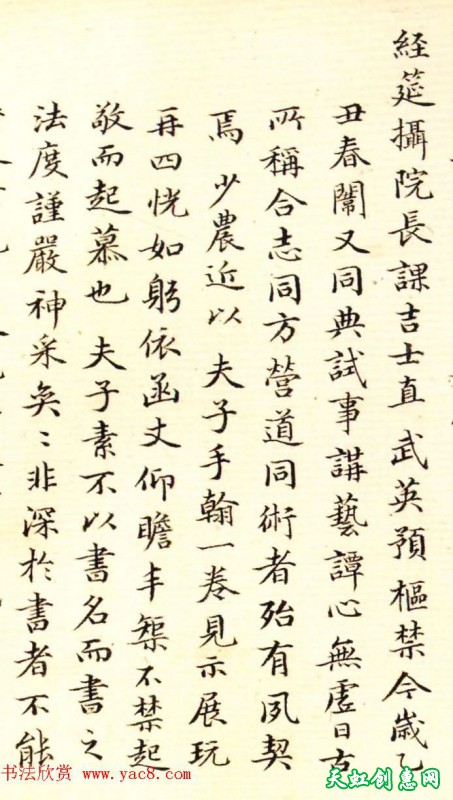 經筵攝院長課吉士直武英預樞禁今歲乙
丑春闈又同典試事講藝譚心無虛日古
所稱合志同方營道同術者殆有夙契
焉少農近以夫子手翰一卷見示展玩
再四恍如躬依函丈仰瞻丰槼不禁起
敬而起慕也夫子素不以書名而書之
法度謹嚴神采奐〻非深於書者不能
书法欣赏 www.yac8.com
天虹创惠网